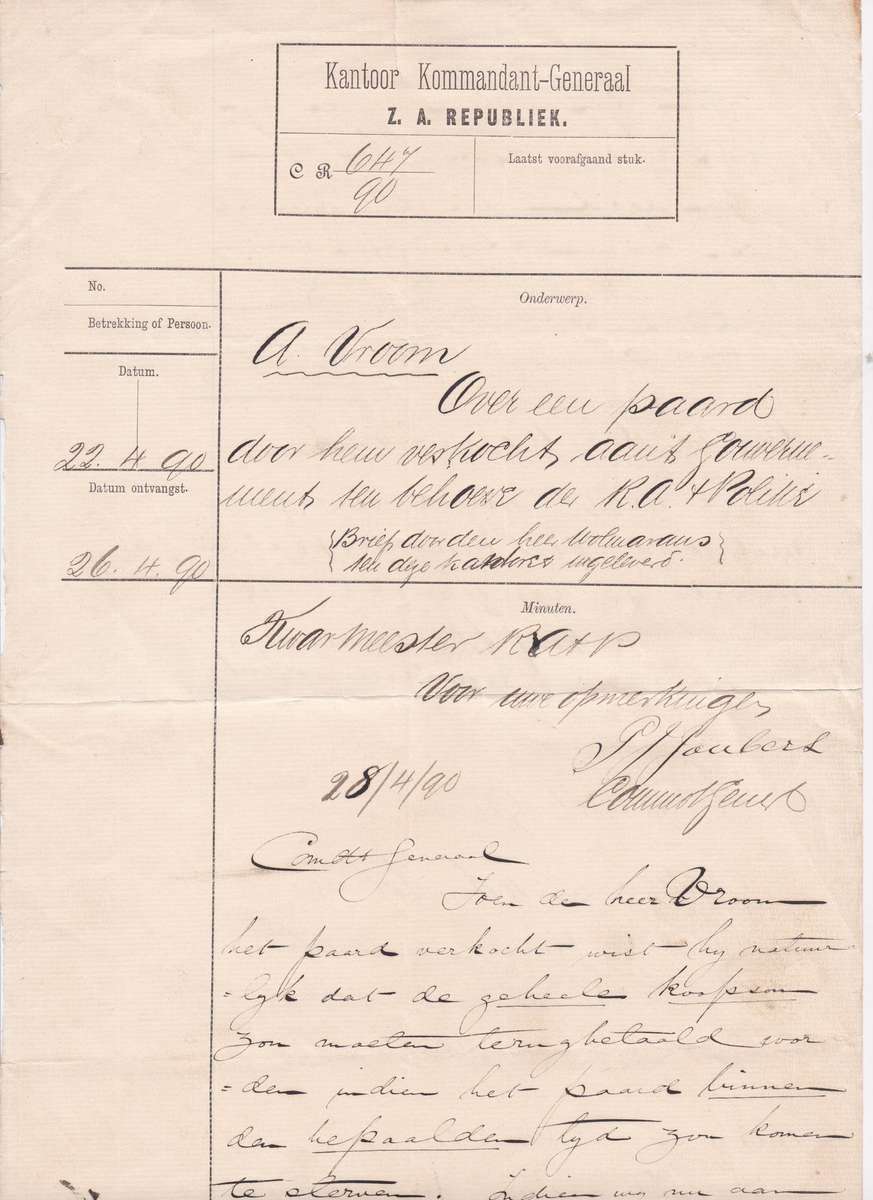 Kantoor Kommandant-Generaal
Z. A. REPUBLIEK.
C R 647
90
Laatst voorafgaand stuk.
No.
Betrekking of Persoon.
Datum.
22. 4 90
Datum ontvangst.
26. 4. 90
Onderwerp.
A. Vroom
Over een paard
door hem verkocht aan't Gouverne-
ment ten behoeve der R.A. + Politie
{Brief door den heer Wolmarans}
{ten dize kantore ingeleverd.}
Minuten.
Kwarmeester RA+P
Voor uwe opmerkingen
P J Joubert
28/4/90
Commdt Generaal
Toen de heer Vroom
het paard verkocht wist hy natuur
=lyk dat de geheele koopsom
zou moeten terugbetaald wor
=den indien het paard binnen
den bepaalden tyd zou komen
te sterven. Indien wy nu aan